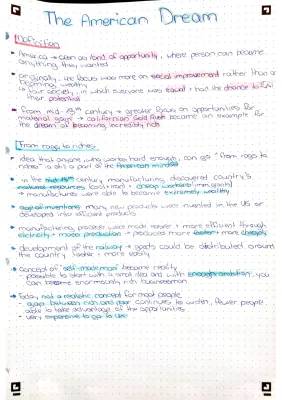 The American Dream
Definition
America → seen as land of opportunity, where person can become
anything they wanted
originally, the focus was more on social improvement rather than on
becoming wealthy
↳ fair society, in which everyone was equal + had the chance to fulfil
their potential
from mid-19th century → greater focus on opportunities for
material gains → California Gold Rush became an example for
the dream of becoming incredibly rich
From rags to riches
idea that anyone who works hard enough, can go "from rags to
riches" is still a part of the American mindset
in the mid-19th century manufacturing discovered country's
natural resources (coal + iron) + cheap workers (immigrants)
→ manufacturers were able to become extremely wealthy
age of inventions: many new products were invented in the US or
developed into efficient products
manufacturing process was made easier + more efficient through
electricity + mass production → produced more faster + more cheaply
development of the railway → goods could be distributed around
the country faster + more easily
concept of self-made man became reality
possible to start with a small idea and with enough ambition, you
can become enormously rich businessman
Today not a realistic concept for most people
- gaps between rich and poor continues to widen, fewer people
able to take advantage of the opportunities
- very expensive to go to uni